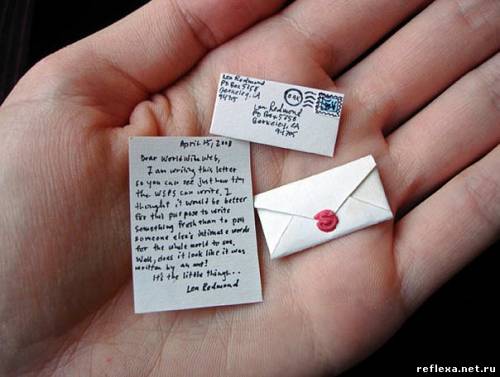 Lea Redmond
PO Box 5258
Berkeley, CA
94705
Lea Redmond
PO Box 5258
Berkeley, CA
94705
April 15, 2008
Dear World Wide Web,
I am writing this letter
so you can see just how tiny
the WSPS can write. I
thought it would be better
for this purpose to write
something fresh than to post
someone else's intimate words
for the whole world to see.
Well, does it look like it was
written by an ant?
It's the little things...
Lea Redmond
reflexa.net.ru